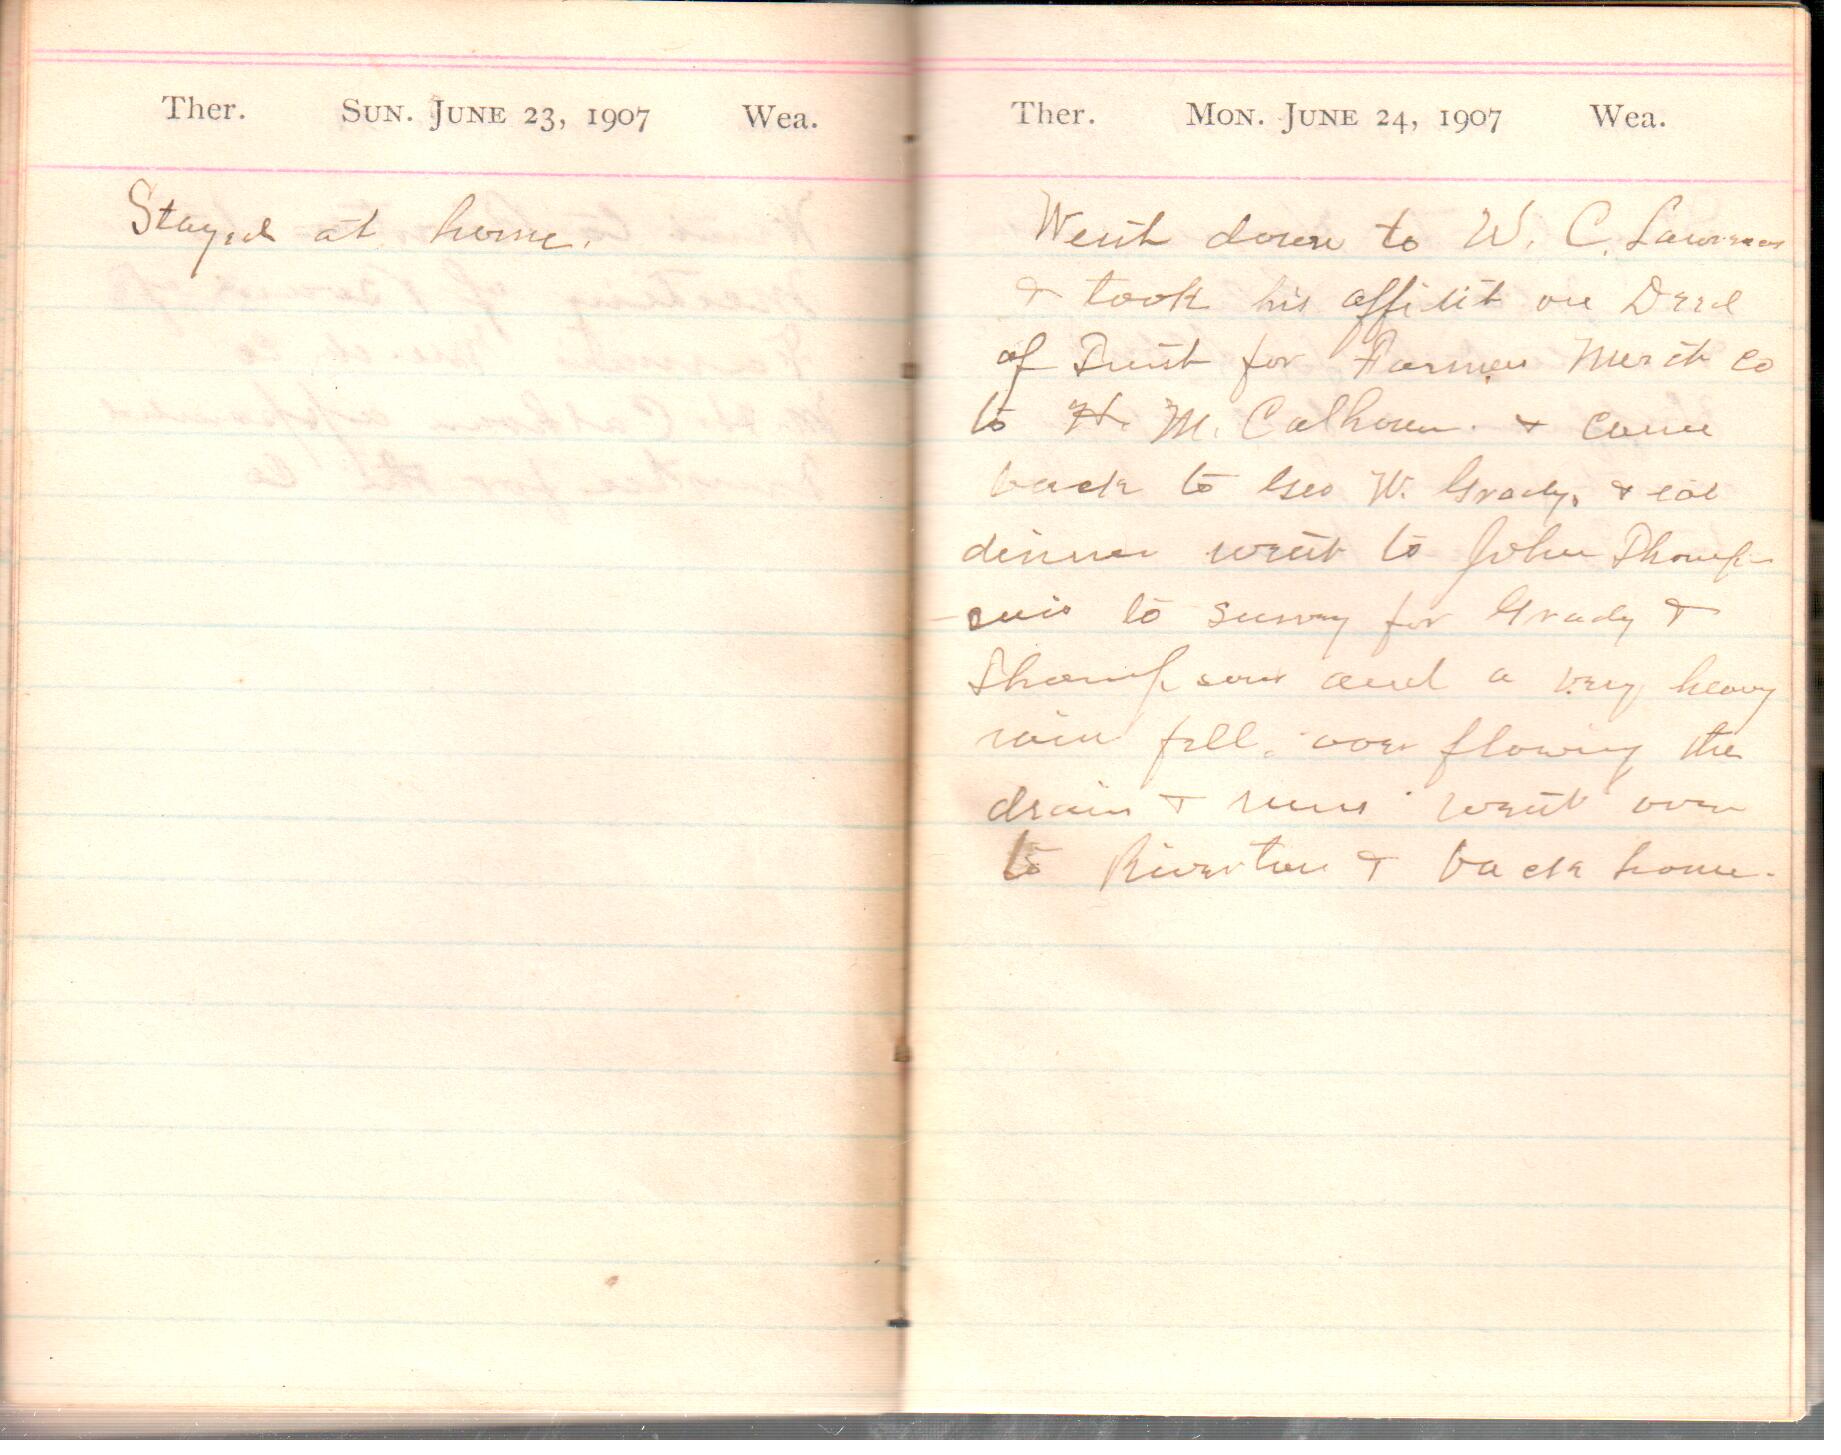 Ther. Sun. June 23, 1907 Wea.
Stayed at home.
Ther. Mon. June 24, 1907 Wea.
Went down to W. C. Lawrences
& took his on Deed
of Trust for Farmer Merch Co
to H. M. Calhoun. & came
back to Geo W. Grady, & eat
dinner went to John Thomp-
sons to survey for Grady &
Thompson and a very heavy
rain fell. over flowing the
drain & runs went over
to Riverton & back home.